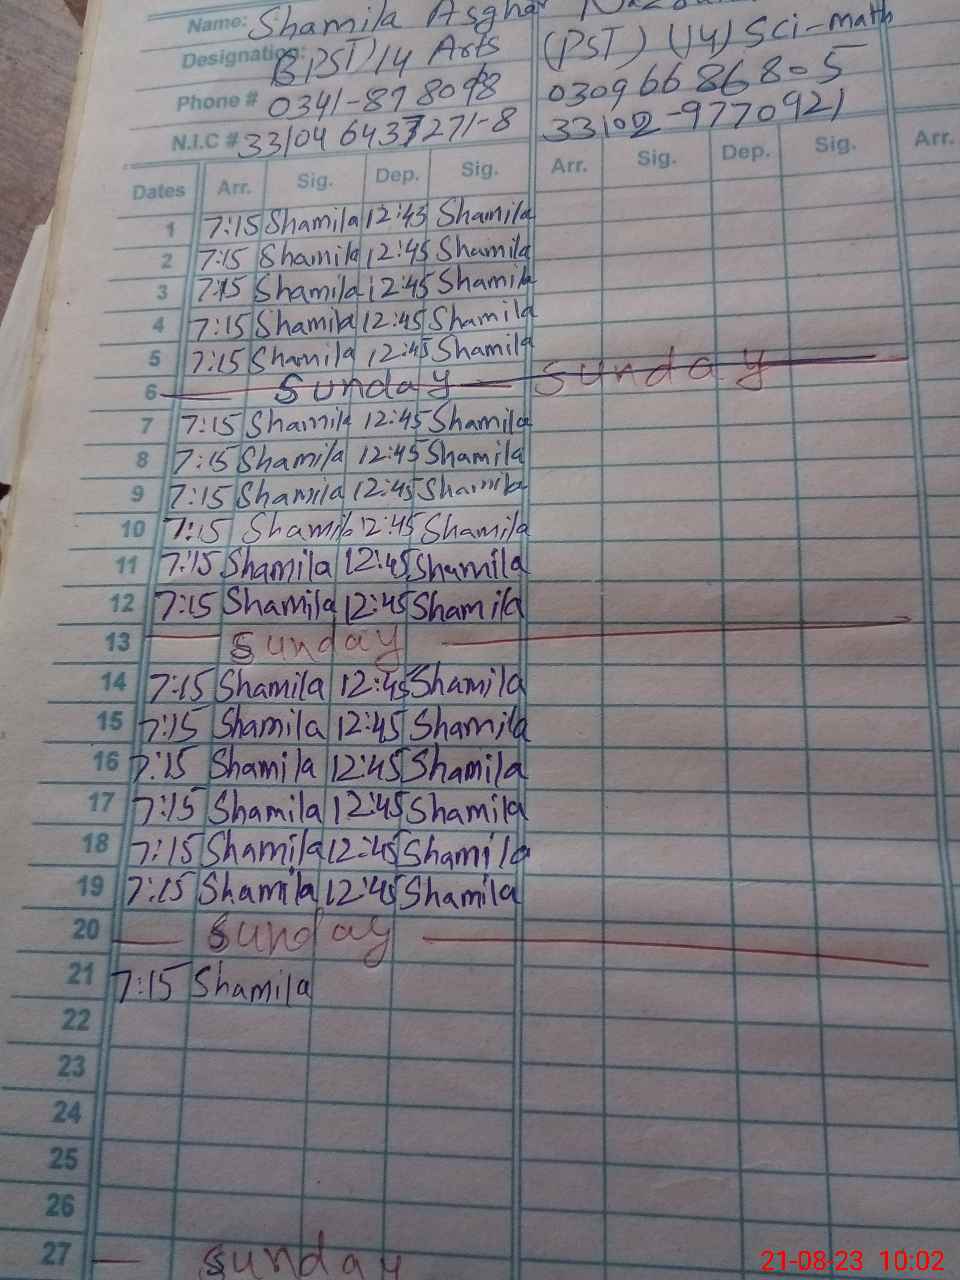 Name: Shamila Asghar
Designation: BPST/14 Arts (PST) (14) Sci-math
Phone # 0341-8 8098 03096686805
N.I.C # 33104 6437271-8 33102-9770921
Dates Arr. Sig. Dep. Sig. Arr. Sig. Dep. Sig. Arr.
1 7:15 Shamila 12:43 Shamila
2 7:15 Shamila 12:45 Shamila
3 7:15 Shamila 12:45 Shamila
4 7:15 Shamila 12:45 Shamila
5 7:15 Shamila 12:45 Shamila
6 Sunday Sunday
7 7:15 Shamila 12:45 Shamila
8 7:15 Shamila 12:45 Shamila
9 7:15 Shamila 12:45 Shamila
10 7:15 Shamila 12:45 Shamila
11 7:15 Shamila 12:45 Shamila
12 7:15 Shamila 12:45 Shamila
13 Sunday
14 7:15 Shamila 12:45 Shamila
15 7:15 Shamila 12:45 Shamila
16 7:15 Shamila 12:45 Shamila
17 7:15 Shamila 12:45 Shamila
18 7:15 Shamila 12:45 Shamila
19 7:15 Shamila 12:45 Shamila
20 Sunday
21 7:15 Shamila
22
23
24
25
26
27 Sunday
21-08-23 10:02